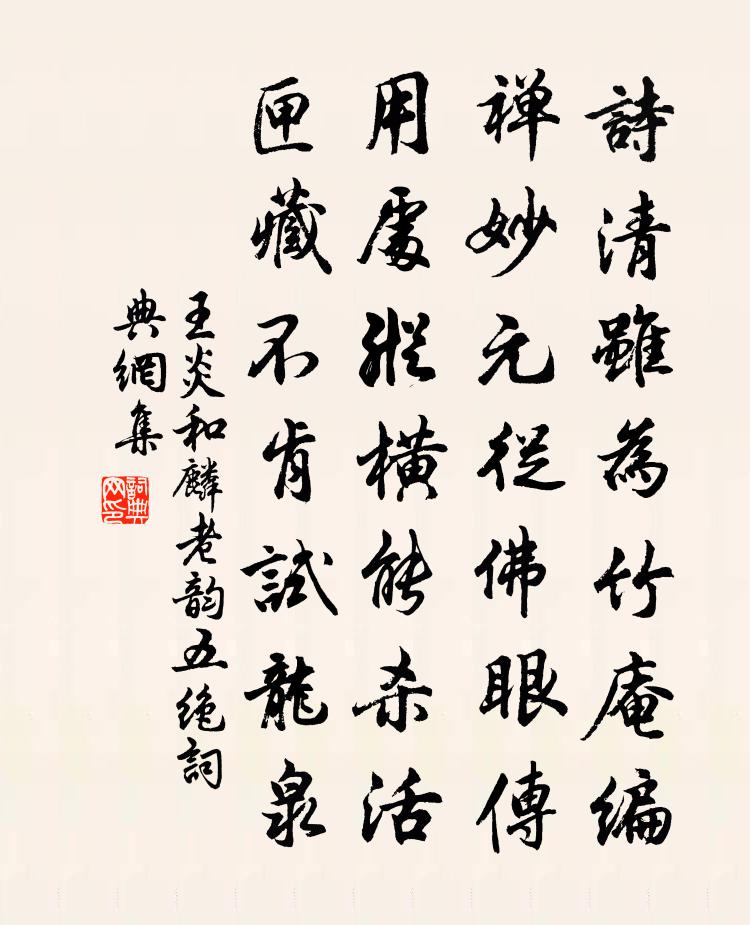 詩清雖為竹庵編
禅妙元從佛眼傳
用處縱橫能杀活
匣藏不肯試龍泉
王炎和麟老韵五绝詞
典網集
詞典
网印